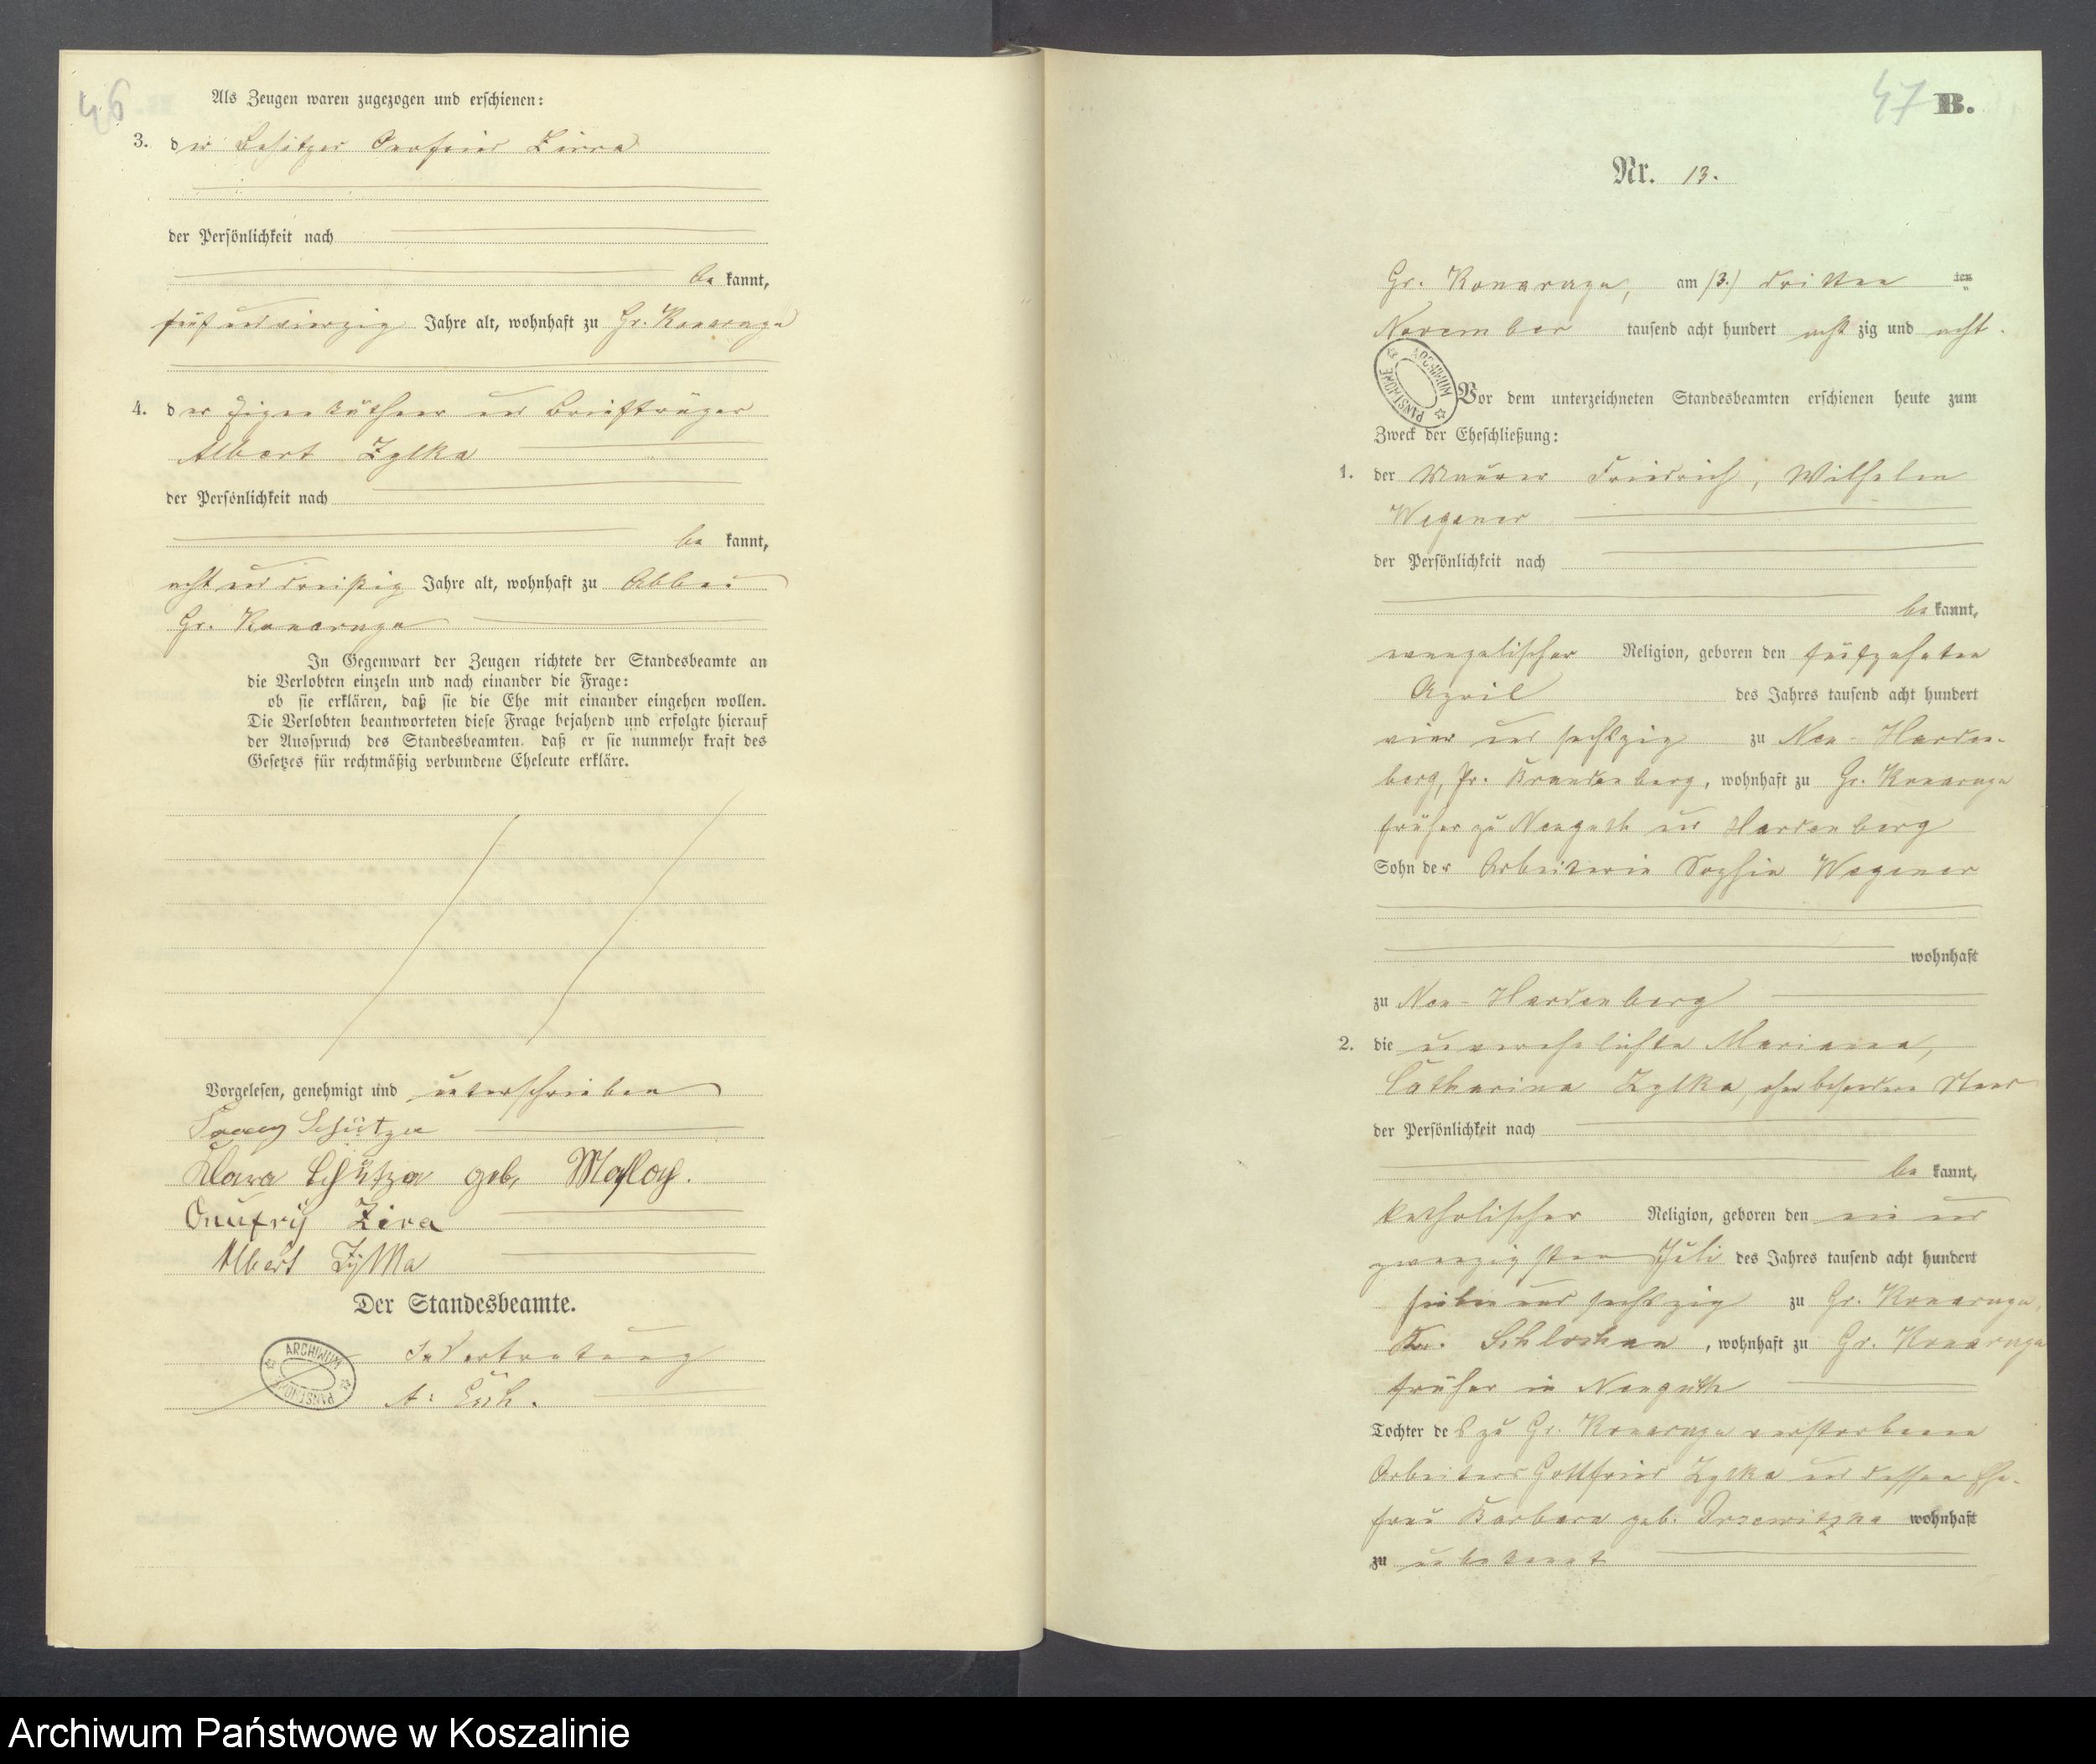 46
Als Zeugen waren zugezogen und erschienen:
3. der Besitzer Onufrius Zierra
der Persönlichkeit nach
be kannt,
fünf und vierzig Jahre alt, wohnhaft zu Gr. Konarczyn
4. der Eigenkäthner und Briefträger
Albert Zylka
der Persönlichkeit nach
be kannt,
acht und dreißig Jahre alt, wohnhaft zu Abbau
Gr. Konarczyn
In Gegenwart der Zeugen richtete der Standesbeamte an
die Verlobten einzeln und nach einander die Frage:
ob sie erklären, daß sie die Ehe mit einander eingehen wollen.
Die Verlobten beantworteten diese Frage bejahend und erfolgte hierauf
der Ausspruch des Standesbeamten, daß er sie nunmehr kraft des
Gesetzes für rechtmäßig verbundene Eheleute erkläre.
Vorgelesen, genehmigt und unterschrieben
Schütze
Clara Schütze geb.
Onufry Zira
Albert Zylka
Der Standesbeamte.
In Vertretung
A:
ARCHIWUM PAŃSTWOWE
47 B.
Nr. 13.
Gr. Konarczyn, am (3.) dritten ten
November tausend acht hundert acht zig und acht.
Vor dem unterzeichneten Standesbeamten erschienen heute zum
Zweck der Eheschließung:
1. der Maurer Friedrich, Wilhelm
Wegener
der Persönlichkeit nach
be kannt,
evangelischer Religion, geboren den fünfzehnten
April des Jahres tausend acht hundert
vier und sechszig zu Neu-Harden-
berg, Pr. Brandenburg, wohnhaft zu Gr. Konarczyn
früher zu Neuguth und Hardenberg
Sohn der Arbeiterin Sophie Wegener
wohnhaft
zu Neu-Hardenberg
2. die unverehelichte Marianna,
Catharina Zylka, ohne besonderen Stand
der Persönlichkeit nach
be kannt,
katholischer Religion, geboren den ein und
zwanzigsten Juli des Jahres tausend acht hundert
sieben und sechszig zu Gr. Konarczyn,
Kr. Schlochau, wohnhaft zu Gr. Konarczyn
früher in Neuguth
Tochter des zu Gr. Konarczyn verstorbenen
Arbeiters Gottfried Zylka und dessen Ehe-
frau Barbara geb. wohnhaft
zu unbekannt
Archiwum Państwowe w Koszalinie